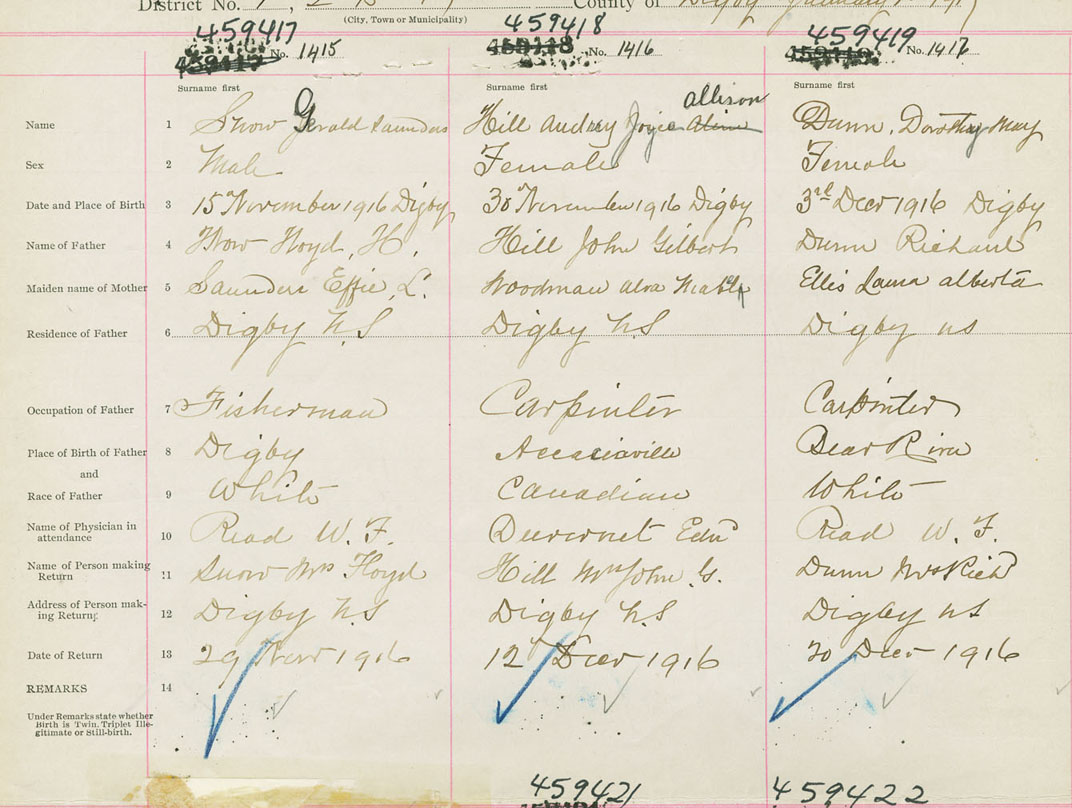 District No.
County of Digby January 1917
(City, Town or Municipality)
459417 459418 459419
No. 1415 No. 1416 No. 1417
Surname first Surname first Surname first
Name 1 Snow Gerald Saunders Hill Audrey Joyce allison Dunn, Dorothy May
Sex 2 Male Female Female
Date and Place of Birth 3 15 November 1916 Digby 30 November 1916 Digby 3rd Decr 1916 Digby
Name of Father 4 Snow Floyd, H. Hill John Gilbert Dunn Richard
Maiden name of Mother 5 Saunders Effie, L. Woodman alva Ellis Laura alberta
Residence of Father 6 Digby N.S Digby N.S Digby ns
Occupation of Father 7 Fisherman Carpinter Carpinter
Place of Birth of Father 8 Digby Accaciaville Bear River
and
Race of Father 9 White Canadian White
Name of Physician in
attendance 10 Read W. F. Edm Read W. F.
Name of Person making
Return 11 Snow Mrs Floyd Hill Mrs John G. Dunn Mrs Rich
Address of Person mak-
ing Return 12 Digby N.S Digby N.S Digby ns
Date of Return 13 29 Novr 1916 12 Decr 1916 20 Decr 1916
REMARKS 14
Under Remarks state whether
Birth is Twin, Triplet Ille-
gitimate or Still-birth.
459421 459422